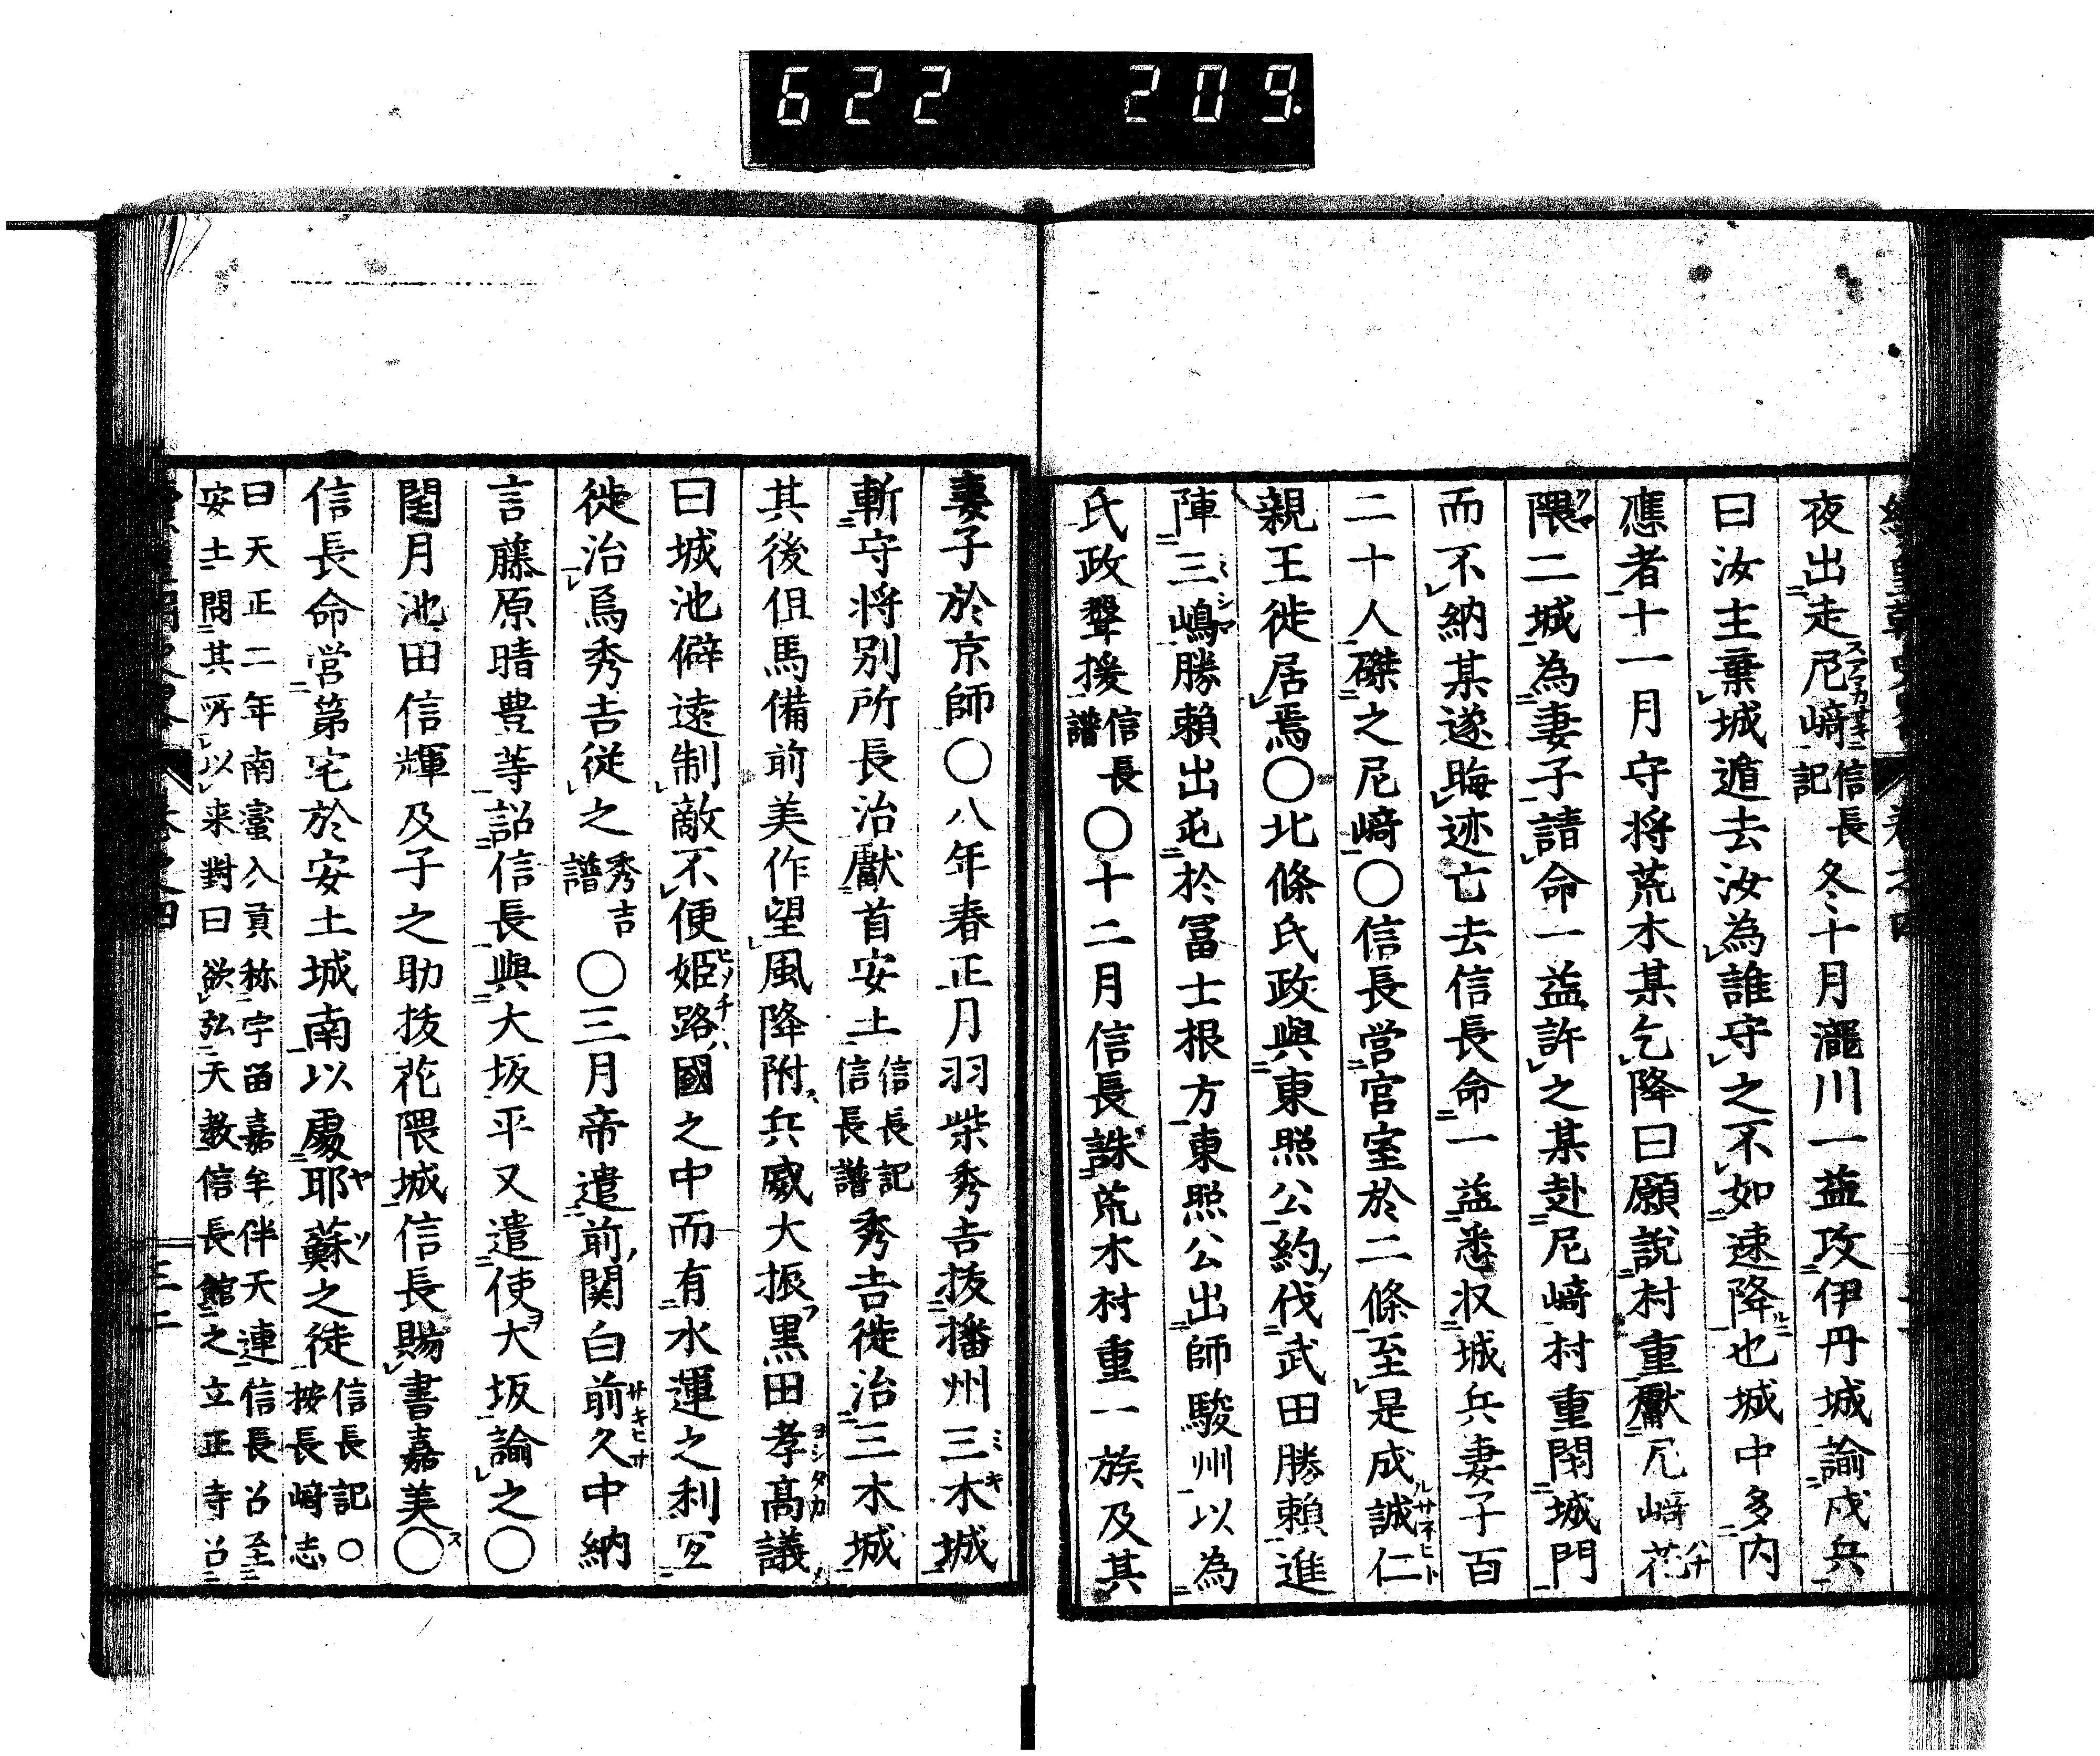 622 209
夜出走尼﨑信長記冬十月瀧川一益攻伊丹城諭戍兵
曰汝主棄城遁去汝為誰守之不如速降也城中多内
應者十一月守将荒木某乞降曰願說村重獻尼﨑花
隈二城為妻子請命一益許之某赴尼﨑村重閉城門
而不納某遂晦迹亡去信長命一益悉収城兵妻子百
二十人磔之尼﨑〇信長営宮室於二條至是成誠仁
親王徙居焉〇北條氏政與東照公約伐武田勝賴進
陣三嶋勝賴出屯於冨士根方東照公出師駿州以為
氏政聲援信長譜〇十二月信長誅荒木村重一族及其
妻子於京師〇八年春正月羽柴秀吉拔播州三木城
斬守将別所長治獻首安土信長記信長譜秀吉徙治三木城
其後伹馬備前美作望風降附兵威大振黒田孝髙議
曰城池僻遠制敵不便姫路國之中而有水運之利宜
徙治焉秀吉従之秀吉譜〇三月帝遣前関白前久中納
言藤原晴豊等詔信長與大坂平又遣使大坂諭之〇
閏月池田信輝及子之助拔花隈城信長賜書嘉美〇
信長命営第宅於安土城南以處耶蘇之徒信長記〇按長﨑志
曰天正二年南蠻入貢称宇留嘉牟伴天連信長召至
安土問其所以来對曰欲弘天教信長館之立正寺召